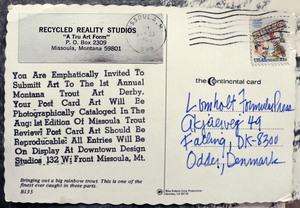 RECYCLED REALITY STUDIOS
"A Tru Art Form"
P. O. Box 2309
Missoula, Montana 59801
You Are Emphatically Invited To
Submitt Art To The 1st Annual
Montana Trout Art Derby.
Your Post Card Art Will Be
Photographically Cataloged In The
Aug: 1st Edition Of Missoula Trout
Review! Post Card Art Should Be
Reproducable: All Entries Will Be
On Display At Downtown Design
Studios, 132 W: Front Missoula, Mt.
Bringing out a big rainbow trout. This is one of the
finest ever caught in these parts.
B135
the Continental card
USA
Lomholt Formular Press
49
Falling, DK-8300
Odder, Denmark